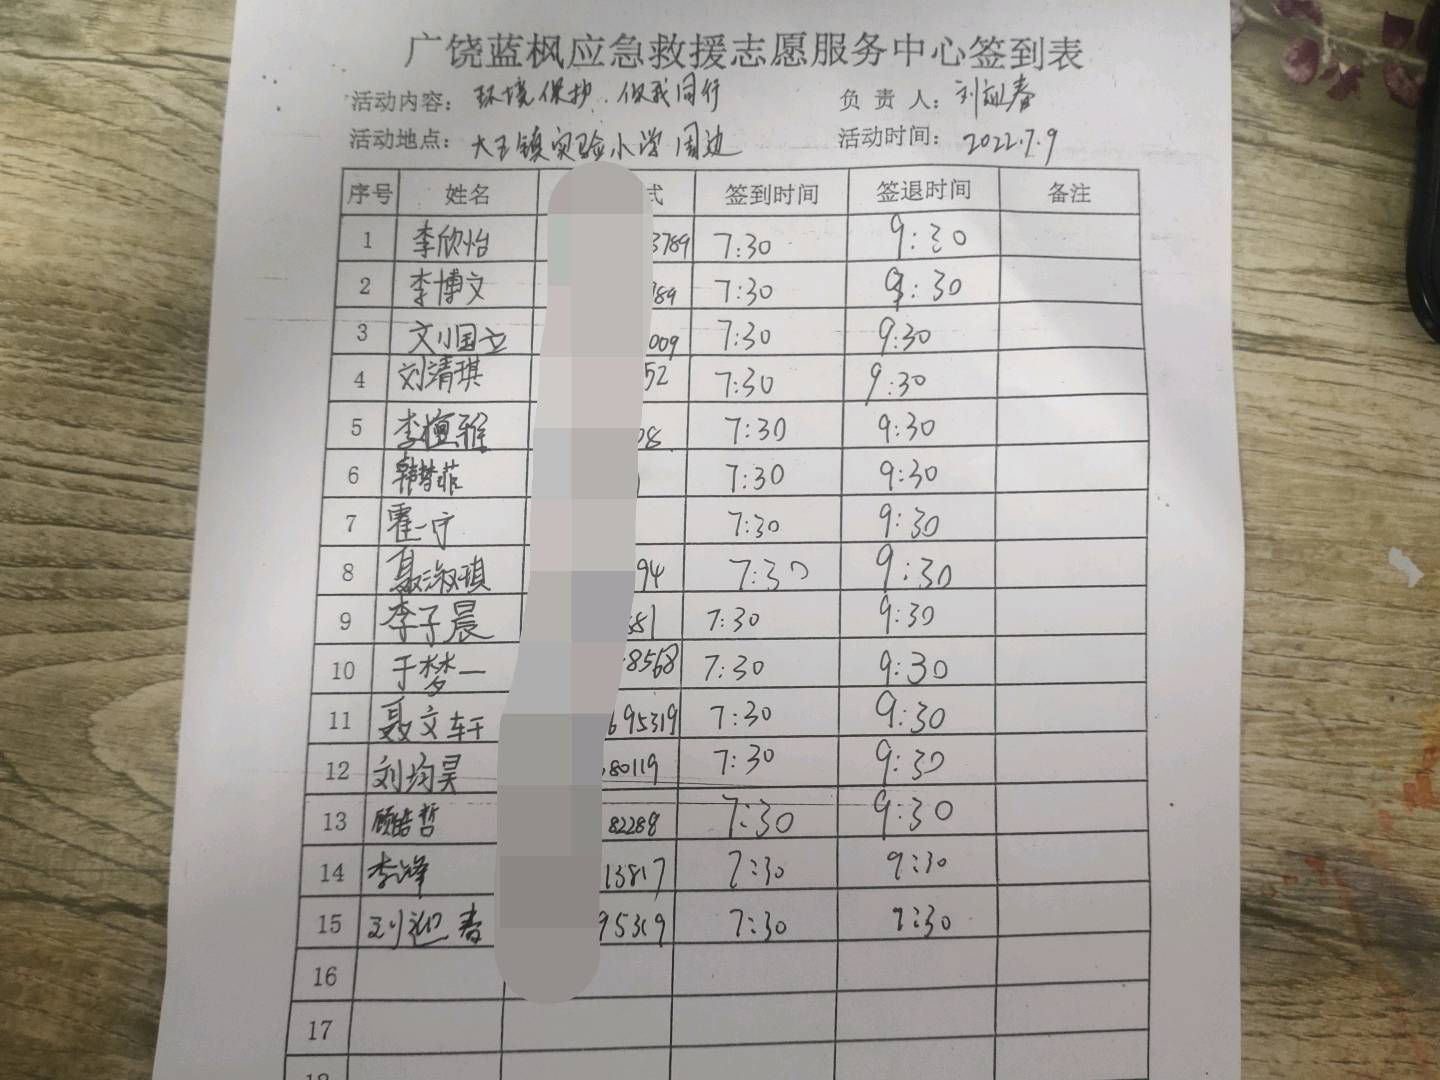 广饶蓝枫应急救援志愿服务中心签到表
活动内容：环境保护.你我同行 负责人：刘迎春
活动地点：大王镇实验小学周边 活动时间：2022.7.9
序号 姓名 式 签到时间 签退时间 备注
1 李欣怡 3789 7:30 9:30
2 李博文 789 7:30 9:30
3 文小国立 009 7:30 9:30
4 刘清琪 52 7:30 9:30
5 李檀雅 08 7:30 9:30
6 韩梦菲 7:30 9:30
7 霍一宁 7:30 9:30
8 聂淑琪 94 7:30 9:30
9 李子晨 881 7:30 9:30
10 于梦一 8568 7:30 9:30
11 聂文轩 695319 7:30 9:30
12 刘均昊 80119 7:30 9:30
13 顾皓哲 82288 7:30 9:30
14 李泽 13817 7:30 9:30
15 刘迎春 95319 7:30 9:30
16
17